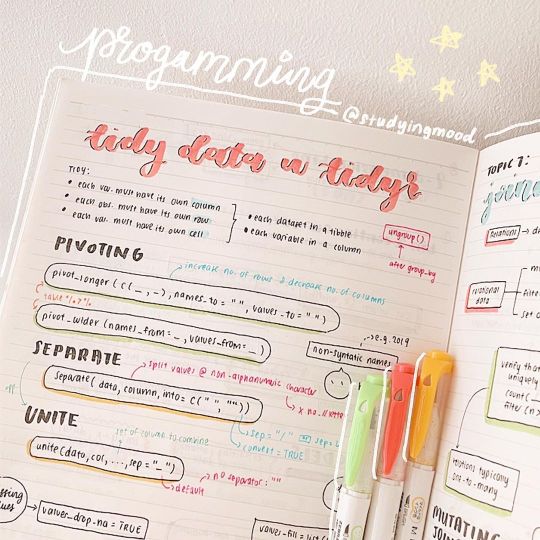 progamming
@studyingmood
tidy data w tidyr
TIDY:
• each var. must have its own column
• each obs. must have its own row
• each var. must have its own cell
• each dataset in a tibble
• each variable in a column
ungroup()
after group_by
PIVOTING
increase no. of rows & decrease no. of columns
pivot_longer ( c( _ , _ ), names_to = " ", values_to = " " )
table %>%
pivot_wider (names_from = _ , values_from = _ )
→ e.g. 2019
non-syntatic names
SEPARATE
split values @ non-alphanumeric character
separate( data, column, into = c(" ", " "))
x no.
sep = "/"
sep =
convert = TRUE
UNITE
set of column to combine
unite(data, col, ..., sep = "_")
no separator : ""
default
values_drop_na = TRUE
values_fill = list(
TOPIC 7:
Relations
relational
data
filte
set o
verify tha
uniquely
count(
filter (n>
relations typically
one-to-many
MUTATING